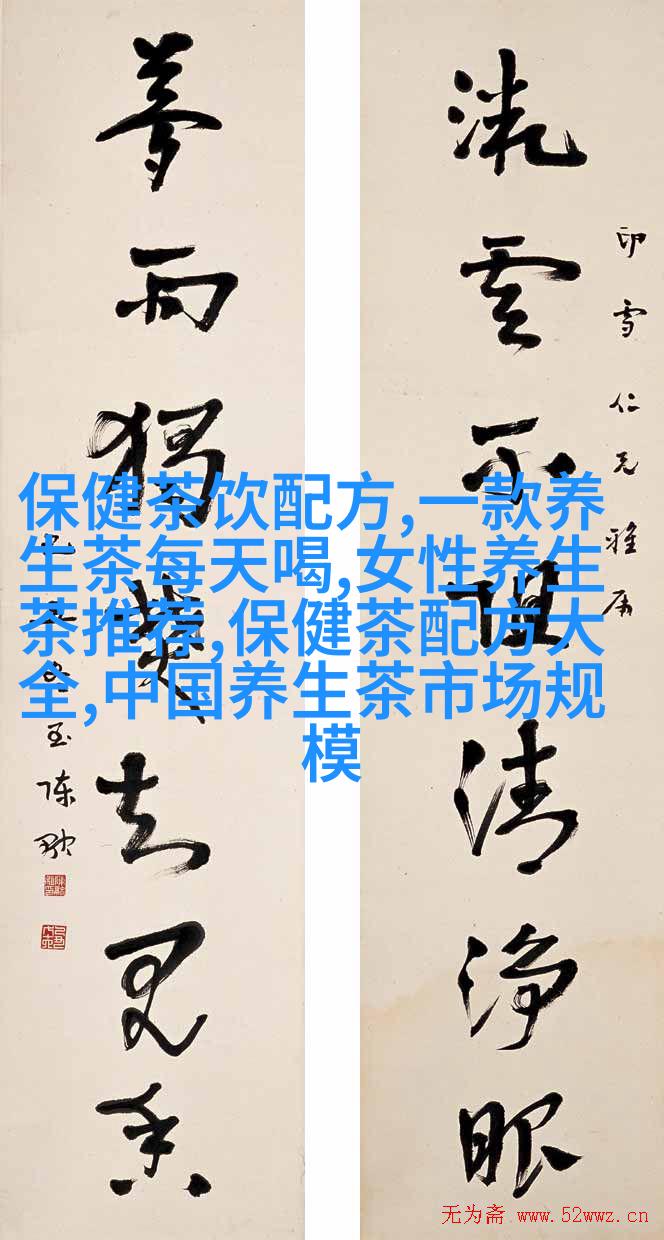 流雲不阻清淨眼
印雪仁兄雅屬
夢雨獨知見香
陳融
保健茶饮配方,一款养
生茶每天喝,女性养生
茶推荐,保健茶配方大
全,中国养生茶市场规
模
无为斋 www.52wwz.cn